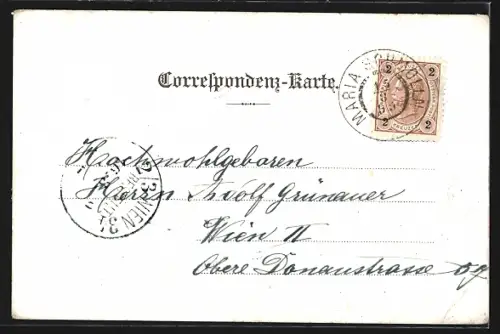 Correspondenz-Karte.
MARIA
2 2
2 2
Hochwohlgeboren
Herrn Adolf Grünauer
Wien II
Obere Donaustrasse
WIEN